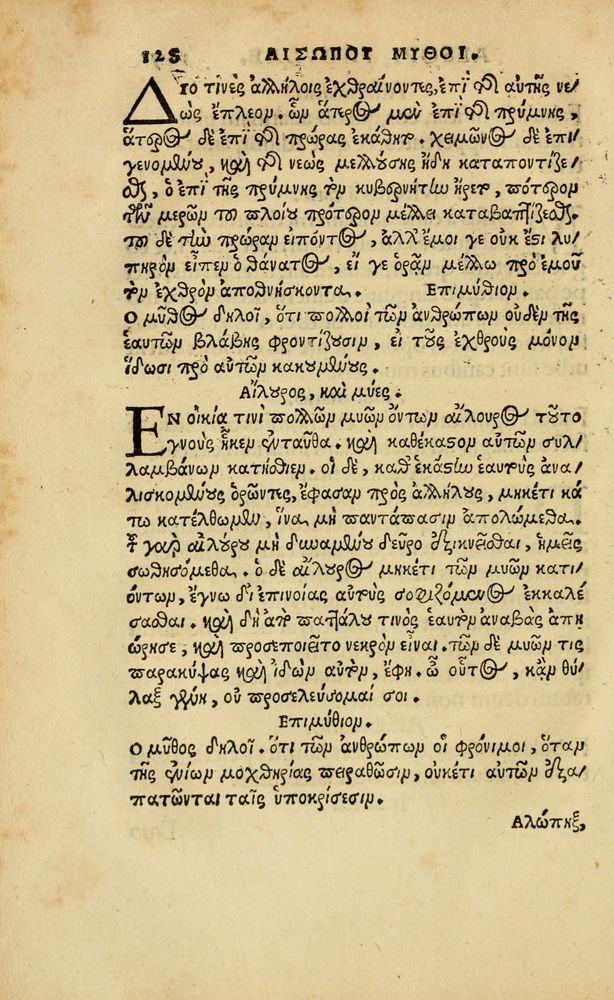 128 ΑΙΣΩΠΟΥ ΜΥΘΟΙ.
Δύο τινὲς ἀλλήλοις ἐχθραίνοντες, ἐπὶ τῆς αὐτῆς νε/
ὼς ἔπλεον. ὧν ἅτερος μὲν ἐπὶ τῆς πρύμνης,
ἅτερος δὲ ἐπὶ τῆς πρώρας ἐκάθητο. χειμῶνος δὲ ἐπι/
γενομένου, καὶ τῆς νεὼς μελλούσης ἤδη καταποντίζε/
σθαι, ὁ ἐπὶ τῆς πρύμνης τὸν κυβερνήτην ἤρετο, πότερον
τῶν μερῶν τοῦ πλοίου πρότερον μέλλει καταβαπτίζεσθαι.
τοῦ δὲ τὴν πρώραν εἰπόντος, ἀλλ' ἔμοι γε οὐκ ἔστι λυ/
πηρὸν εἶπεν ὁ θάνατος, εἴ γε ὁρᾶν μέλλω πρὸ ἐμοῦ
τὸν ἐχθρὸν ἀποθνήσκοντα. Ἐπιμύθιον.
Ὁ μῦθος δηλοῖ, ὅτι πολλοὶ τῶν ἀνθρώπων οὐδὲν τῆς
ἑαυτῶν βλάβης φροντίζουσιν, εἰ τοὺς ἐχθροὺς μόνον
ἴδωσι πρὸ αὐτῶν κακουμένους.
Αἴλουρος, καὶ μύες.
ΕΝ οἰκία τινὶ πολλῶν μυῶν ὄντων αἴλουρος τοῦτο
γνοὺς ἧκεν ἐνταῦθα. καὶ καθέκαστον αὐτῶν συλ/
λαμβάνων κατήσθιεν. οἱ δὲ, καθ' ἑκάστην ἑαυτοὺς ἀνα/
λισκομένους ὁρῶντες, ἔφασαν πρὸς ἀλλήλους, μηκέτι κά
τω κατέλθωμεν, ἵνα μὴ παντάπασιν ἀπολώμεθα.
τοῦ γὰρ αἰλούρου μὴ δυναμένου δεῦρο ἐξικνεῖσθαι, ἡμεῖς
σωθησόμεθα. ὁ δὲ αἴλουρος μηκέτι τῶν μυῶν κατι/
όντων, ἔγνω δι' ἐπινοίας αὐτοὺς σοφιζόμενος ἐκκαλέ
σασθαι. καὶ δὴ ἀπὸ παττάλου τινὸς ἑαυτὸν ἀναβὰς ἀπῃ
ώρησε, καὶ προσεποιεῖτο νεκρὸν εἶναι. τῶν δὲ μυῶν τις
παρακύψας καὶ ἰδὼν αὐτὸν, ἔφη. ὦ οὗτος, κἂν θύ/
λαξ γένῃ, οὐ προσελεύσομαί σοι.
Ἐπιμύθιον.
Ὁ μῦθος δηλοῖ. ὅτι τῶν ἀνθρώπων οἱ φρόνιμοι, ὅταν
τῆς ἐνίων μοχθηρίας πειραθῶσιν, οὐκέτι αὐτῶν ἐξα/
πατῶνται ταῖς ὑποκρίσεσιν.
Ἀλώπηξ,